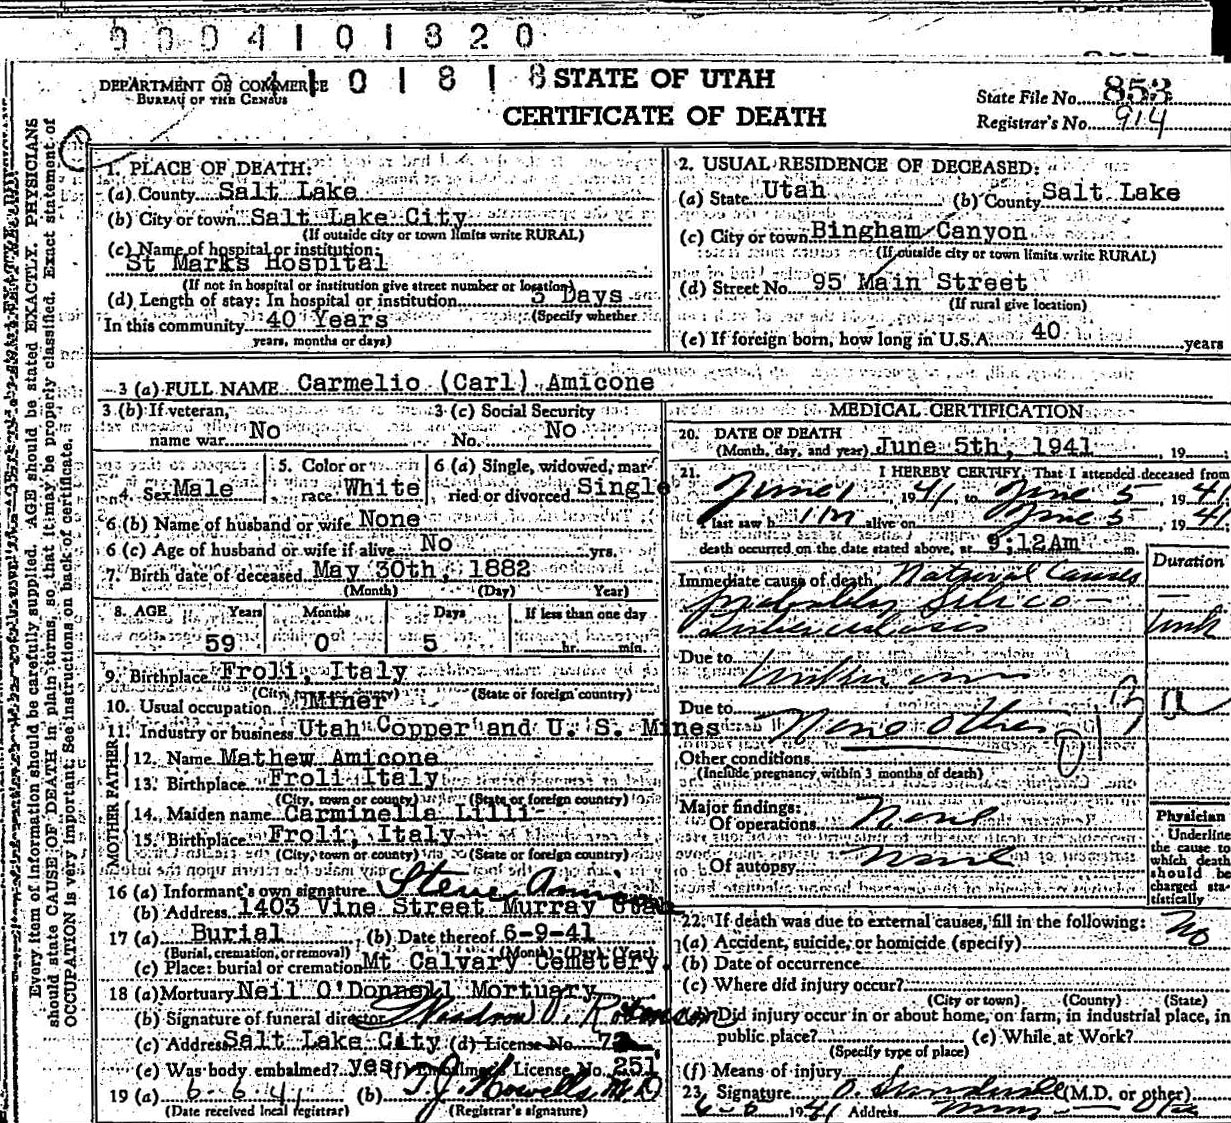 0004101820
04101818
DEPARTMENT OF COMMERCE
BUREAU OF THE CENSUS
STATE OF UTAH
CERTIFICATE OF DEATH
State File No. 853
Registrar's No. 914
Every item of information should be carefully supplied. AGE should be stated EXACTLY. PHYSICIANS
should state CAUSE OF DEATH in plain terms, so that it may be properly classified. Exact statement of
OCCUPATION is very important. See instructions on back of certificate.
1. PLACE OF DEATH:
(a) County Salt Lake
(b) City or town Salt Lake City
(If outside city or town limits write RURAL)
(c) Name of hospital or institution:
St Marks Hospital
(If not in hospital or institution give street number or location)
(d) Length of stay: In hospital or institution 3 Days
(Specify whether
In this community 40 Years
years, months or days)
2. USUAL RESIDENCE OF DECEASED:
(a) State Utah (b) County Salt Lake
(c) City or town Bingham Canyon
(If outside city or town limits write RURAL)
(d) Street No. 95 Main Street
(If rural give location)
(e) If foreign born, how long in U.S.A. 40 years
3 (a) FULL NAME Carmelio (Carl) Amicone
3 (b) If veteran, name war No
3 (c) Social Security No. No
4. Sex Male
5. Color or race White
6 (a) Single, widowed, married or divorced Single
6 (b) Name of husband or wife None
6 (c) Age of husband or wife if alive No yrs.
7. Birth date of deceased May 30th, 1882
(Month) (Day) Year)
8. AGE Years Months Days If less than one day
59 0 5 hr. min.
9. Birthplace Froli, Italy
(City, town or county) (State or foreign country)
10. Usual occupation Miner
11. Industry or business Utah Copper and U. S. Mines
FATHER
12. Name Mathew Amicone
13. Birthplace Froli Italy
(City, town or county) (State or foreign country)
MOTHER
14. Maiden name Carminella Lilli
15. Birthplace Froli, Italy
(City, town or county) (State or foreign country)
16 (a) Informant's own signature Steve
(b) Address 1403 Vine Street Murray Utah
17 (a) Burial (b) Date thereof 6-9-41
(Burial, cremation, or removal) (Month) (Day) (Year)
(c) Place: burial or cremation Mt Calvary Cemetery
18 (a) Mortuary Neil O'Donnell Mortuary
(b) Signature of funeral director
(c) Address Salt Lake City (d) License No.
(e) Was body embalmed? yes (f) Embalmer's License No. 251
19 (a) 6-6-41 (b) T.J. Howells M.D
(Date received local registrar) (Registrar's signature)
MEDICAL CERTIFICATION
20. DATE OF DEATH
(Month, day, and year) June 5th, 1941, 19
21. I HEREBY CERTIFY, That I attended deceased from
June 1, 1941, to June 5, 1941
I last saw him alive on June 5, 1941
death occurred on the date stated above, at 9:12Am m.
Duration
Immediate cause of death Natural Causes
probably Silico-
tuberculosis unk
Due to Unknown
Due to None other
Other conditions
(Include pregnancy within 3 months of death)
Major findings:
Of operations None
Of autopsy None
Physician
Underline
the cause to
which death
should be
charged sta-
tistically
22. If death was due to external causes, fill in the following: No
(a) Accident, suicide, or homicide (specify)
(b) Date of occurrence
(c) Where did injury occur?
(City or town) (County) (State)
Did injury occur in or about home, on farm, in industrial place, in
public place? (e) While at Work?
(Specify type of place)
(f) Means of injury
23. Signature (M.D. or other)
6-6 1941 Address